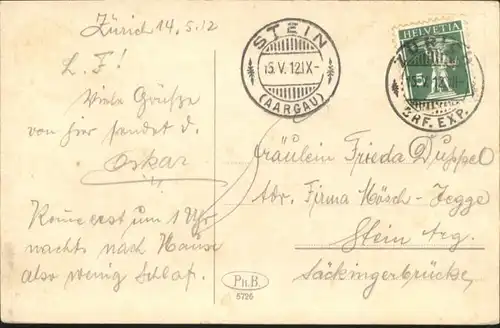 Zürich 14.5.12
L. F!
Viele Grüsse
von hier sendet d.
Oskar
Komme erst um 1 Uhr
nachts nach Hause
also wenig Schlaf.
STEIN
15.V.12.IX-
(AARGAU)
HELVETIA
BRF. EXP.
Fräulein Frieda Duppel
Adr. Firma Hösch-Jegge
Stein Arg.
Säckingerbrücke
PH.B.
6726